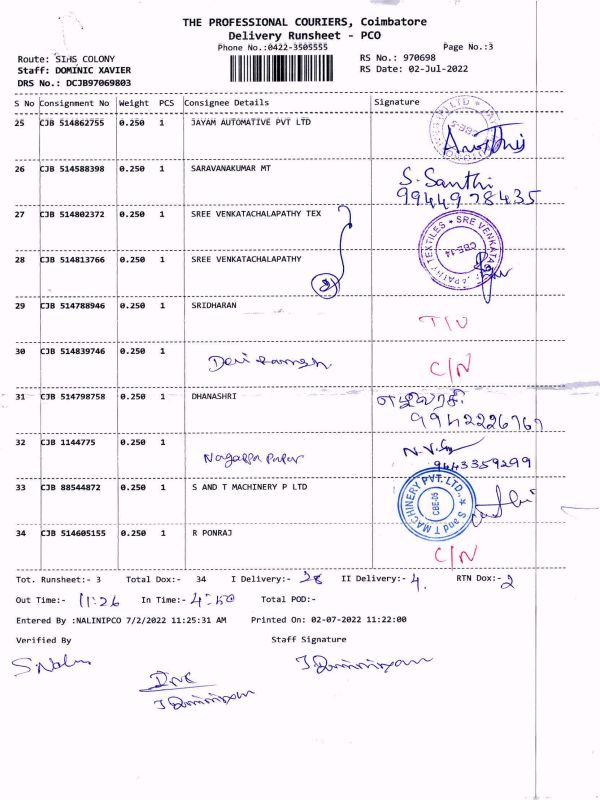 THE PROFESSIONAL COURIERS, Coimbatore
Delivery Runsheet - PCO
Phone No.:0422-3505555 Page No.:3
Route: SIHS COLONY RS No.: 970698
Staff: DOMINIC XAVIER RS Date: 02-Jul-2022
DRS No.: DCJB97069803
S No Consignment No Weight PCS Consignee Details Signature
25 CJB 514862755 0.250 1 JAYAM AUTOMATIVE PVT LTD
26 CJB 514588398 0.250 1 SARAVANAKUMAR MT S. Santhi
9944978435
27 CJB 514802372 0.250 1 SREE VENKATACHALAPATHY TEX
28 CJB 514813766 0.250 1 SREE VENKATACHALAPATHY CBE-14
29 CJB 514788946 0.250 1 SRIDHARAN
30 CJB 514839746 0.250 1 C/N
31 CJB 514798758 0.250 1 DHANASHRI எழிலரசி
9942226767
32 CJB 1144775 0.250 1 N.V.
9443359299
33 CJB 88544872 0.250 1 S AND T MACHINERY P LTD S and T MACHINERY PVT. LTD., CBE-05
34 CJB 514605155 0.250 1 R PONRAJ C/N
Tot. Runsheet:- 3 Total Dox:- 34 I Delivery:- 28 II Delivery:- 4 RTN Dox:- 2
Out Time:- 11:26 In Time:- 4:50 Total POD:-
Entered By :NALINIPCO 7/2/2022 11:25:31 AM Printed On: 02-07-2022 11:22:00
Verified By Staff Signature